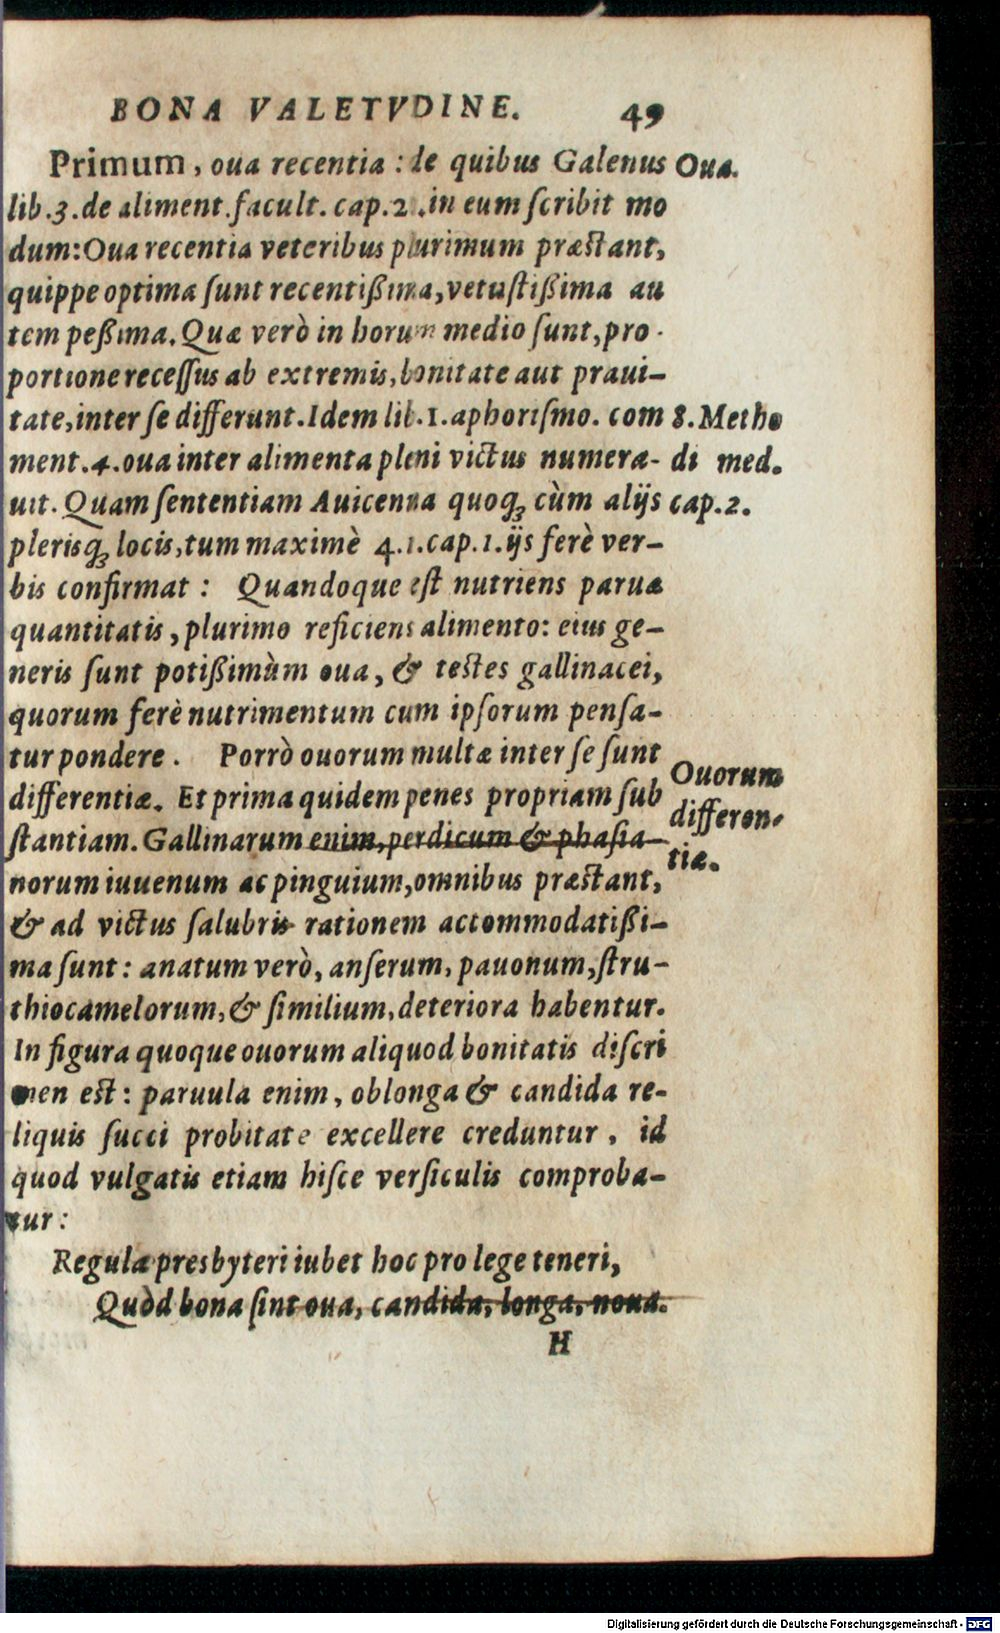 BONA VALETVDINE. 49
Primum, oua recentia : de quibus Galenus
Oua.
lib.3.de aliment.facult. cap.2 .in eum ſcribit mo
dum:Oua recentia veteribus plurimum præſtant,
quippe optima ſunt recentißima,vetuſtißima au
tem peßima.Quæ verò in horum medio ſunt,pro
portione receſſus ab extremis,bonitate aut praui-
tate,inter ſe differunt.Idem lib.1.aphoriſmo. com
ment.4.oua inter alimenta pleni victus numera-
uit. Quam ſententiam Auicenna quoq; cùm alijs
8.Metho
di med.
cap.2.
plerisq; locis,tum maximè 4.1.cap.1.ijs ferè ver-
bis confirmat : Quandoque eſt nutriens paruæ
quantitatis,plurimo reficiens alimento: eius ge-
neris ſunt potißimùm oua, & teſtes gallinacei,
quorum ferè nutrimentum cum ipſorum penſa-
tur pondere . Porrò ouorum multæ inter ſe ſunt
differentiæ. Et prima quidem penes propriam ſub
ſtantiam. Gallinarum enim,perdicum & phaſia-
Ouorum
differen-
tiæ.
norum iuuenum ac pinguium,omnibus præſtant,
& ad victus ſalubris rationem accommodatißi-
ma ſunt: anatum verò, anſerum, pauonum,ſtru-
thiocamelorum,& ſimilium,deteriora habentur.
In figura quoque ouorum aliquod bonitatis diſcri
men eſt: paruula enim, oblonga & candida re-
liquis ſucci probitate excellere creduntur, id
quod vulgatis etiam hiſce verſiculis comproba-
tur:
Regula presbyteri iubet hoc pro lege teneri,
Quòd bona ſint oua, candida, longa, noua.
H
Digitalisierung gefördert durch die Deutsche Forschungsgemeinschaft - DFG